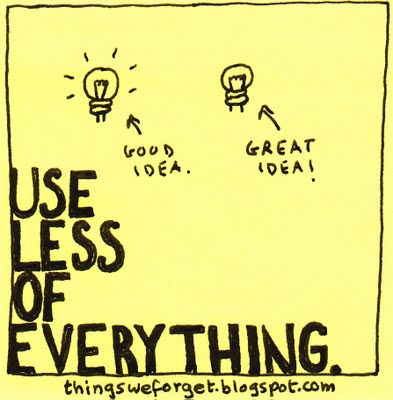 GOOD
IDEA.
GREAT
IDEA!
USE
LESS
OF
EVERYTHING.
thingsweforget.blogspot.com